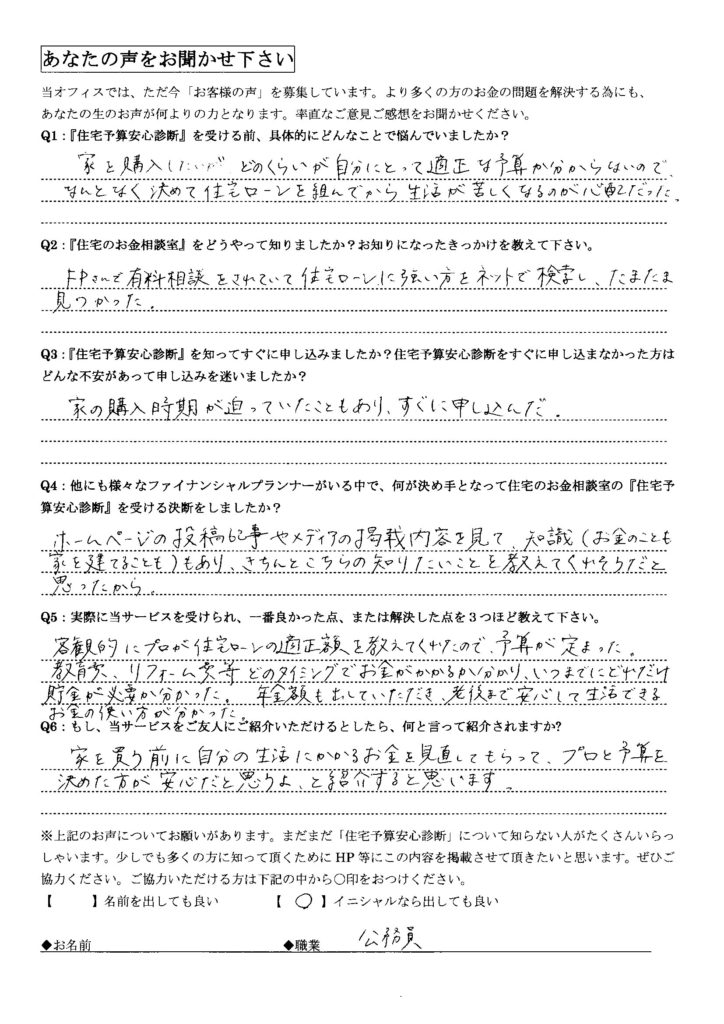 あなたの声をお聞かせ下さい
当オフィスでは、ただ今「お客様の声」を募集しています。より多くの方のお金の問題を解決する為にも、
あなたの生のお声が何よりの力となります。率直なご意見ご感想をお聞かせください。
Q1：『住宅予算安心診断』を受ける前、具体的にどんなことで悩んでいましたか？
家を購入したいが どのくらいが自分にとって適正な予算か分からないので、
なんとなく決めて住宅ローンを組んでから生活が苦しくなるのが心配だった。
Q2：『住宅のお金相談室』をどうやって知りましたか？お知りになったきっかけを教えて下さい。
FPさんで有料相談をされていて住宅ローンに強い方をネットで検索し、たまたま
見つかった。
Q3：『住宅予算安心診断』を知ってすぐに申し込みましたか？住宅予算安心診断をすぐに申し込まなかった方は
どんな不安があって申し込みを迷いましたか？
家の購入時期が迫っていたこともあり、すぐに申し込んだ。
Q4：他にも様々なファイナンシャルプランナーがいる中で、何が決め手となって住宅のお金相談室の『住宅予
算安心診断』を受ける決断をしましたか？
ホームページの投稿記事やメディアの掲載内容を見て、知識（お金のことも
家を建てることも）もあり、きちんとこちらの知りたいことを教えてくれそうだと
思ったから。
Q5：実際に当サービスを受けられ、一番良かった点、または解決した点を３つほど教えて下さい。
客観的にプロが住宅ローンの適正額を教えてくれたので、予算が定まった。
教育費、リフォーム費等どのタイミングでお金がかかるか分かり、いつまでにどれだけ
貯金が必要か分かった。 年金額も出していただき、老後まで安心して生活できる
お金の使い方が分かった。
Q6：もし、当サービスをご友人にご紹介いただけるとしたら、何と言って紹介されますか?
家を買う前に自分の生活にかかるお金を見直してもらって、プロと予算を
決めた方が安心だと思うよ、と紹介すると思います。
※上記のお声についてお願いがあります。まだまだ「住宅予算安心診断」について知らない人がたくさんいらっ
しゃいます。少しでも多くの方に知って頂くためにHP等にこの内容を掲載させて頂きたいと思います。ぜひご
協力ください。ご協力いただける方は下記の中から○印をおつけください。
【　　】名前を出しても良い　　　【 ○ 】イニシャルなら出しても良い
◆お名前　　　◆職業　公務員